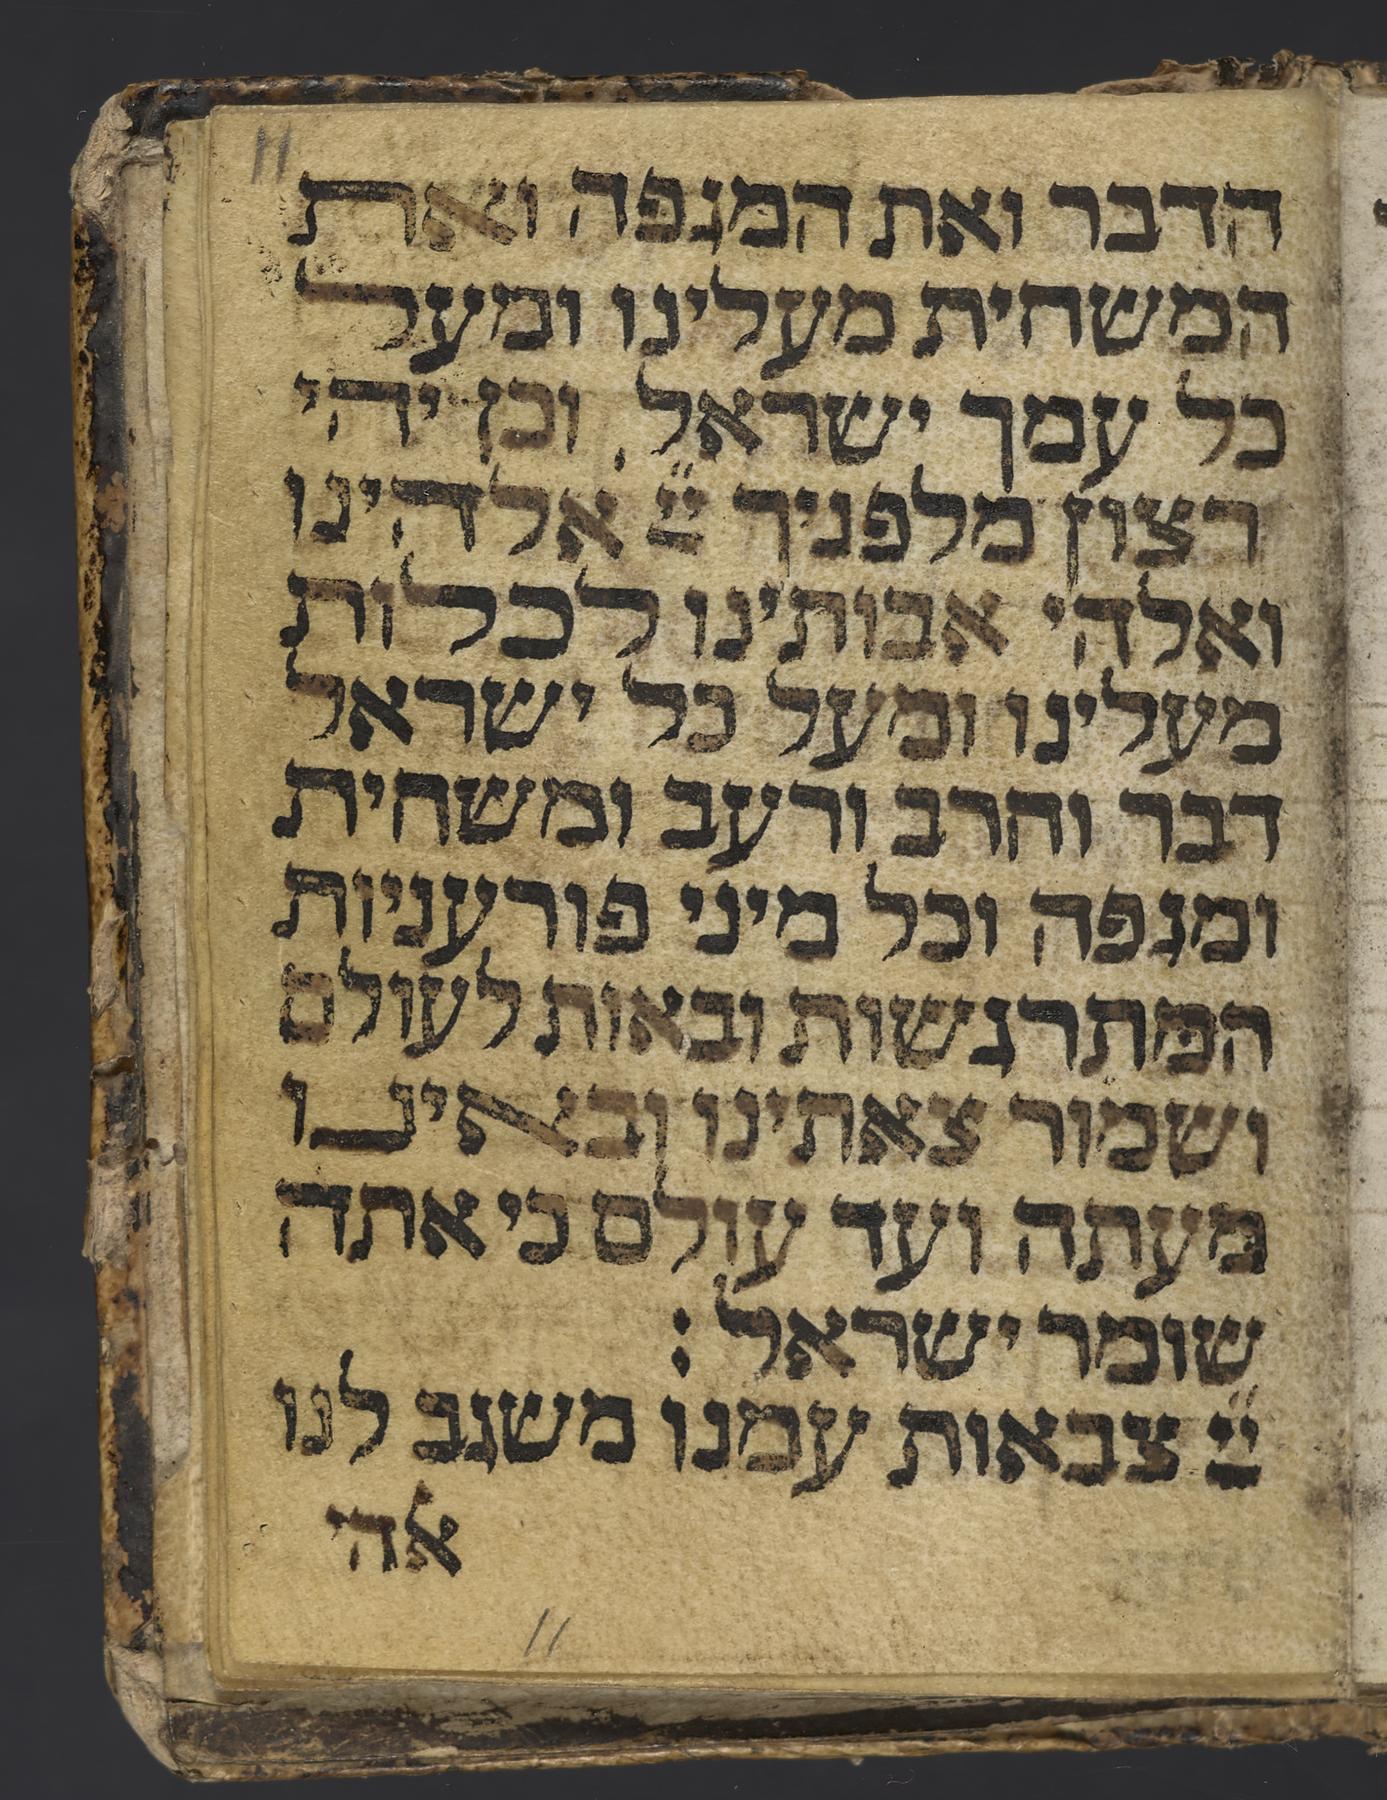 11
הדבר ואת המגפה ואת
המשחית מעלינו ומעל
כל עמך ישראל, וכן יהי
רצון מלפניך יי אלהינו
ואלהי אבותינו לכלות
מעלינו ומעל כל ישראל
דבר וחרב ורעב ומשחית
ומגפה וכל מיני פורעניות
המתרגשות ובאות לעולם
ושמור צאתינו ובאינו
מעתה ועד עולם כי אתה
שומר ישראל:
יי צבאות עמנו משגב לנו
אלהי
11